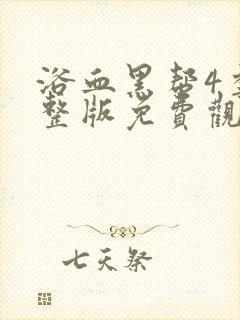 浴血黑帮4
整版免費觀
七天祭